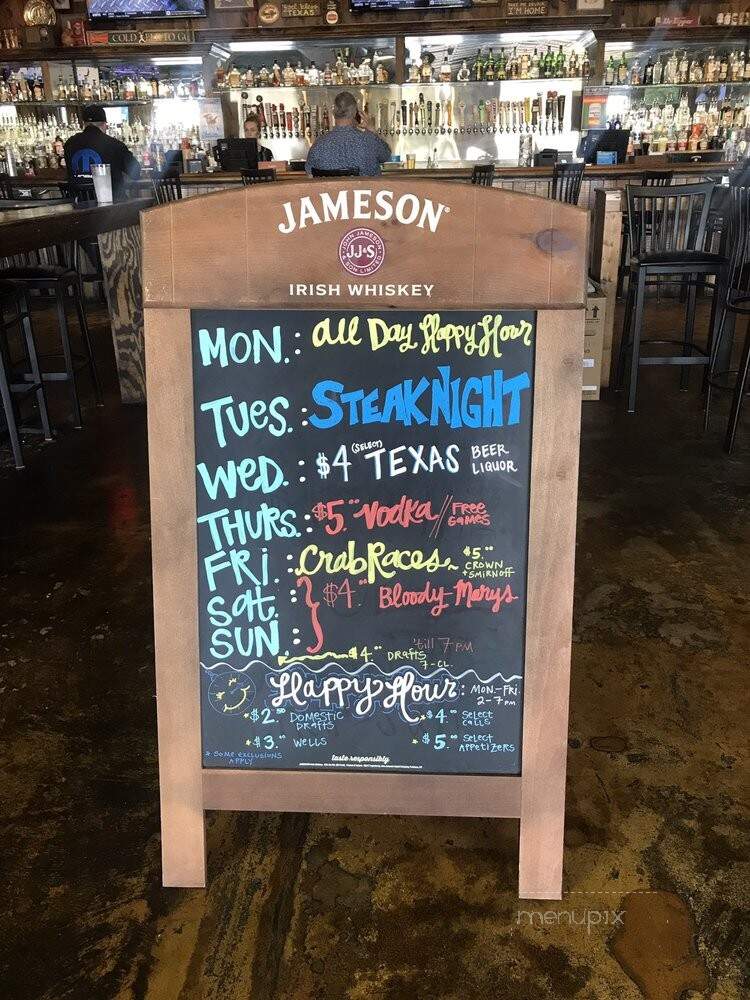 TEXAS
I'M HOME
COLD BEER TO GO
JAMESON®
JOHN JAMESON
JJ&S
& SON LIMITED
IRISH WHISKEY
MON.: all Day Happy Hour
Tues.: STEAK NIGHT
Wed.: $4 (SELECT) TEXAS BEER LIQUOR
THURS.: $5." Vodka // FREE GAMES
FRI.: Crab Races ~ $5." CROWN + SMIRNOFF
Sat.: } $4." Bloody Marys
SUN.: 'till 7 PM
$4." DRAFTS 7-CL.
Happy Hour: MON.-FRI. 2-7PM
*$2.50 DOMESTIC DRAFTS
*$4.00 Select CALLS
*$3.00 Wells
*$5.00 Select APPETIZERS
* SOME EXCLUSIONS APPLY
taste responsibly
menupix